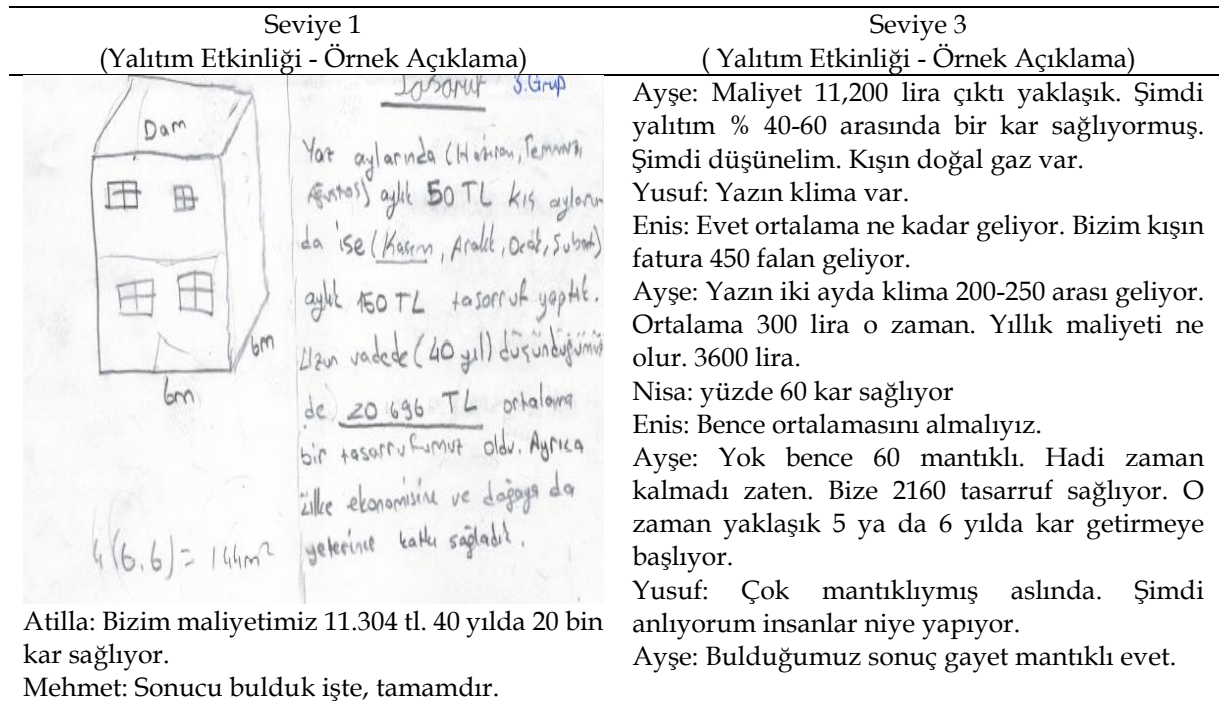 Seviye 1
(Yalıtım Etkinliği - Örnek Açıklama)
Dam
6m
6m
4(6.6) = 144m²
Tasarruf 3.Grup
Yaz aylarında (Haziran, Temmuz,
Ağustos) aylık 50 TL kış ayların
da ise (Kasım, Aralık, Ocak, Şubat)
aylık 150 TL tasarruf yaptık.
Uzun vadede (40 yıl) düşündüğümüz
de 20 696 TL ortalama
bir tasarrufumuz oldu. Ayrıca
ülke ekonomisine ve doğaya da
yeterince katkı sağladık.
Atilla: Bizim maliyetimiz 11.304 tl. 40 yılda 20 bin
kar sağlıyor.
Mehmet: Sonucu bulduk işte, tamamdır.
Seviye 3
( Yalıtım Etkinliği - Örnek Açıklama)
Ayşe: Maliyet 11,200 lira çıktı yaklaşık. Şimdi
yalıtım % 40-60 arasında bir kar sağlıyormuş.
Şimdi düşünelim. Kışın doğal gaz var.
Yusuf: Yazın klima var.
Enis: Evet ortalama ne kadar geliyor. Bizim kışın
fatura 450 falan geliyor.
Ayşe: Yazın iki ayda klima 200-250 arası geliyor.
Ortalama 300 lira o zaman. Yıllık maliyeti ne
olur. 3600 lira.
Nisa: yüzde 60 kar sağlıyor
Enis: Bence ortalamasını almalıyız.
Ayşe: Yok bence 60 mantıklı. Hadi zaman
kalmadı zaten. Bize 2160 tasarruf sağlıyor. O
zaman yaklaşık 5 ya da 6 yılda kar getirmeye
başlıyor.
Yusuf: Çok mantıklıymış aslında. Şimdi
anlıyorum insanlar niye yapıyor.
Ayşe: Bulduğumuz sonuç gayet mantıklı evet.